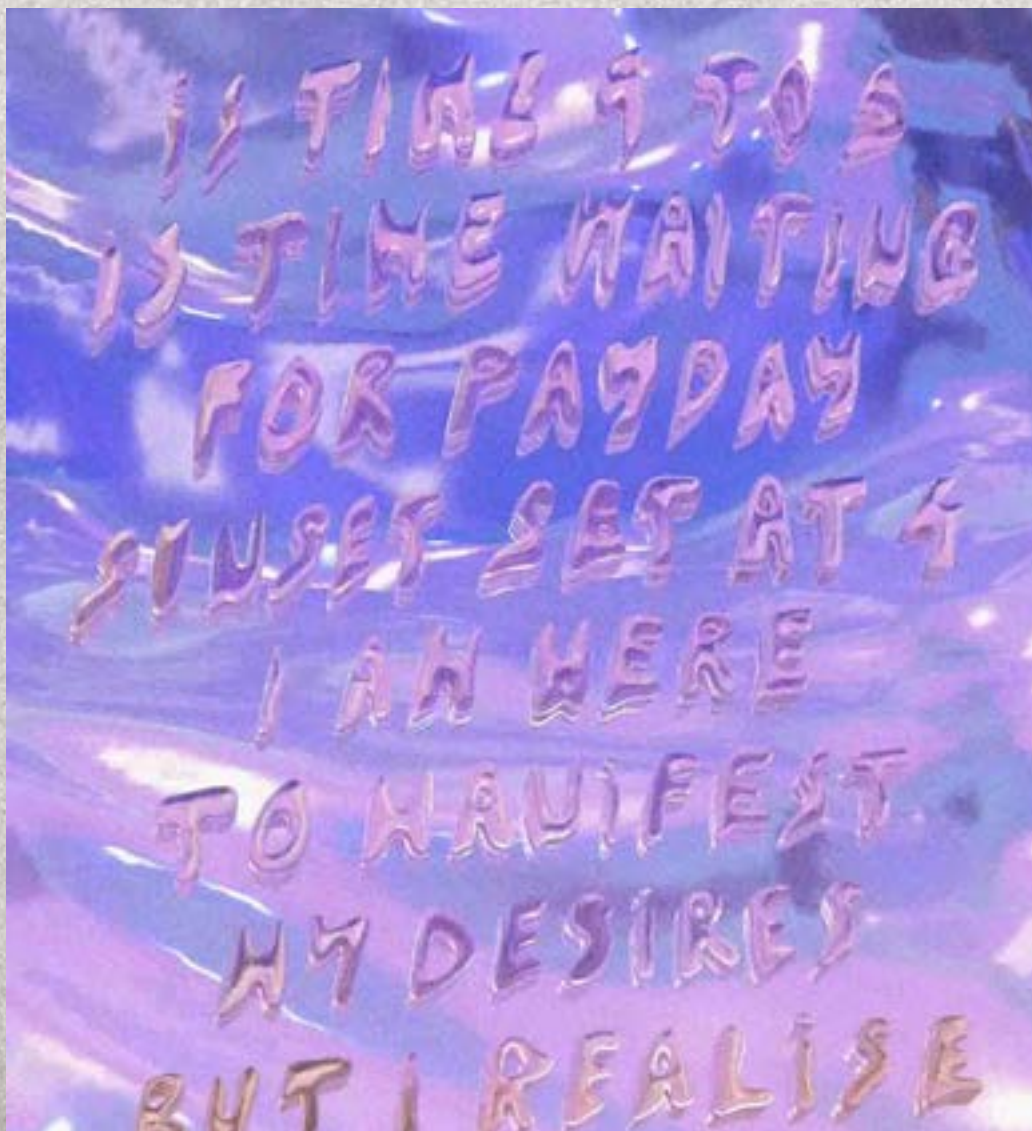 IS TIME 4 TO S
IS TIME WAITING
FOR PAYDAY
SUNSET SET AT 4
I AM HERE
TO MANIFEST
MY DESIRES
BUT I REALISE